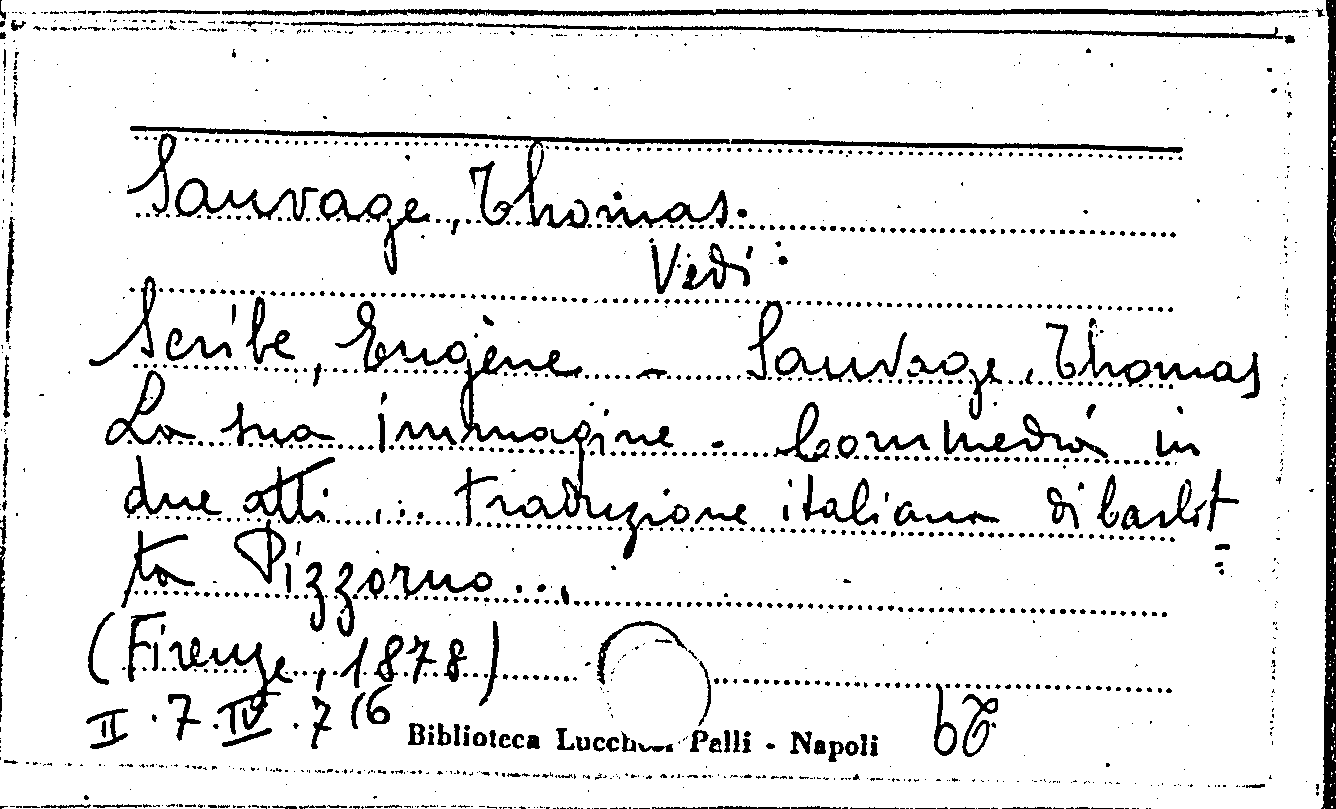 Sauvage, Thomas.
Vedi:
Scribe, Eugène - Sauvage, Thomas
La sua immagine. Commedia in
due atti ... traduzione italiana di
ta Pizzorno...
(Firenze, 1878)
II.7.IV.7(6
Biblioteca Lucchesi Palli - Napoli